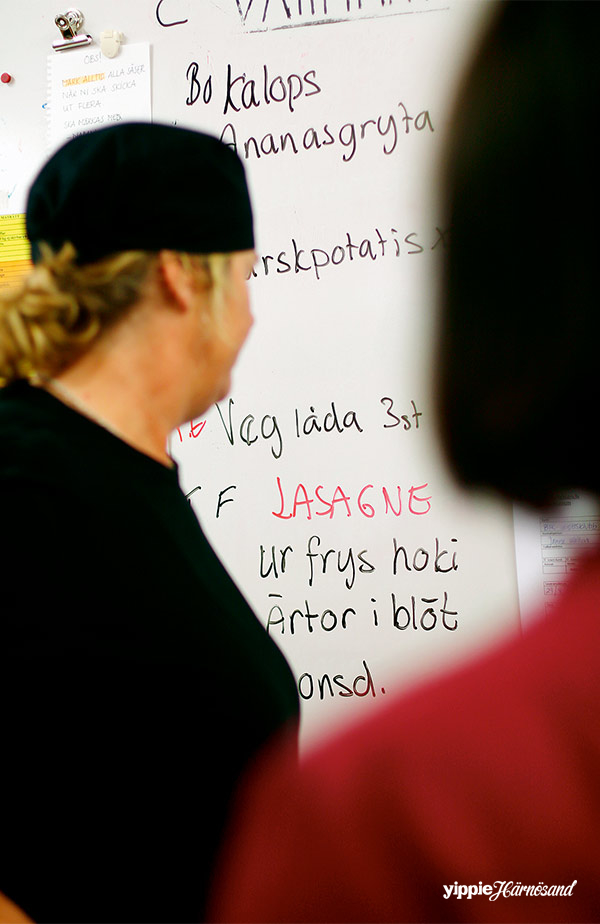 OBS!
MÄRK ALLTID ALLA SÅSER
NÄR NI SKA SKICKA
UT FLERA.
SKA MÄRKAS MED
Bo Kalops
Ananasgryta
Veg låda 3st
F LASAGNE
ur frys hoki
Ärtor i blöt
onsd.
yippie Härnösand